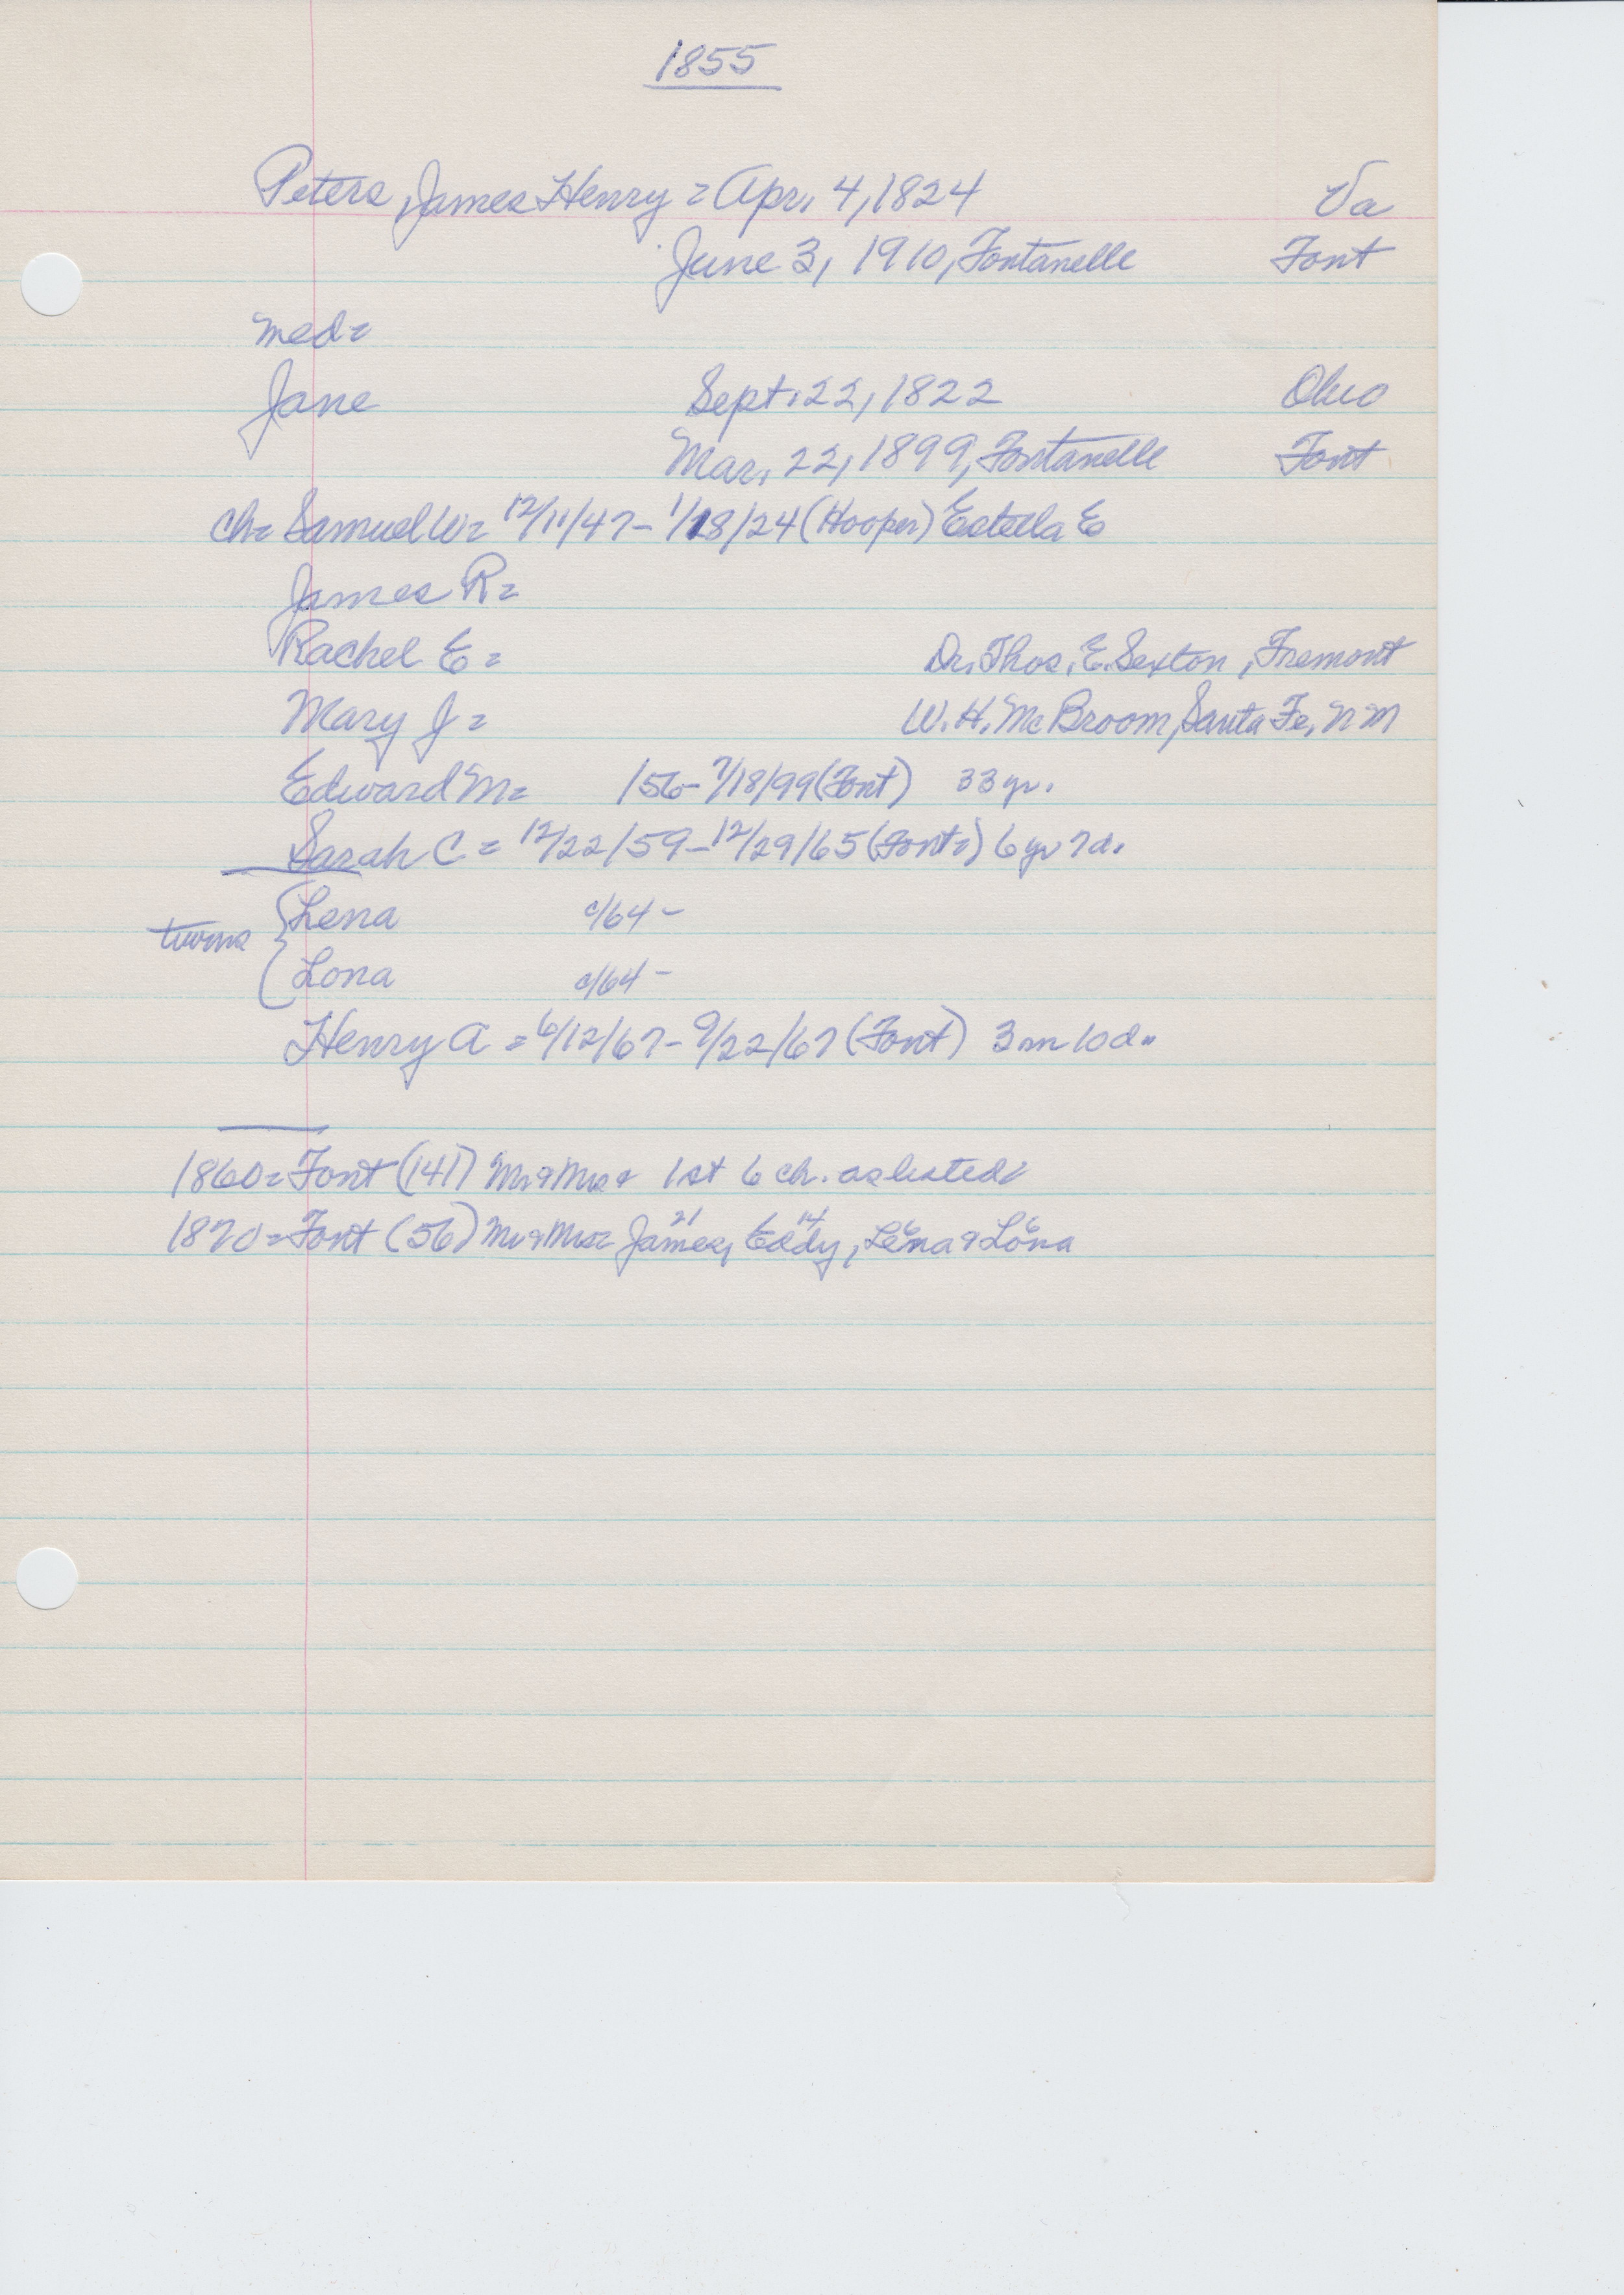 1855
Peters, James Henry = Apr. 4, 1824 Va
June 3, 1910, Fontanelle Font
med=
Jane Sept. 22, 1822 Ohio
Mar. 22, 1899, Fontanelle Font
ch= Samuel W= 12/11/47- 1/18/24 (Hooper) Estella E
James R=
Rachel E= Dr. Thos. E. Sexton, Fremont
Mary J= W. H. McBroom, Santa Fe, N M
Edward M= /56- 7/18/99 (Font) 33 yr.
Sarah C= 12/22/59- 12/29/65 (Font.) 6 yr 7 d.
twins { Lena c/64 -
Lona c/64 -
Henry A = 6/12/67- 9/22/67 (Font) 3 m 10 d.
1860= Font (141) Mr & Mrs & 1st 6 ch. as listed
1870= Font (56) Mr & Mrs= James, 21 Eddy, 14 Lena 6 & Lona 6